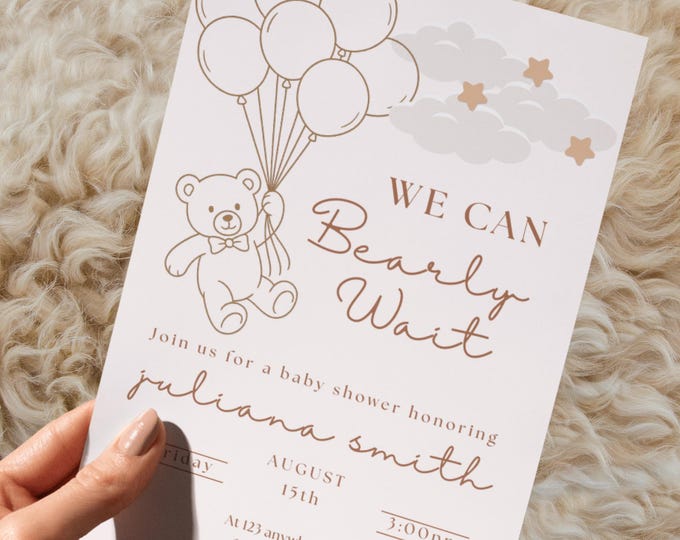 WE CAN
Bearly
Wait
Join us for a baby shower honoring
juliana smith
AUGUST
15th
At 123